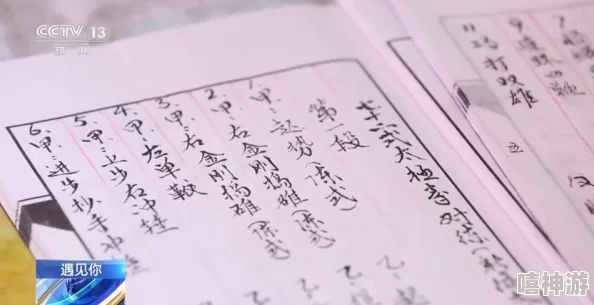 CCTV 13
新闻
式太极拳对练
第一段
1.甲:起势(陈式)
2.甲:右金刚捣碓(陈式)
3.甲:右金刚捣碓(陈式
4.甲:左单鞭
5.甲:上步右冲捶
6.甲:进步抄手冲捶
乙
乙
9
11 巧打双雄
遇见你
嘻神游